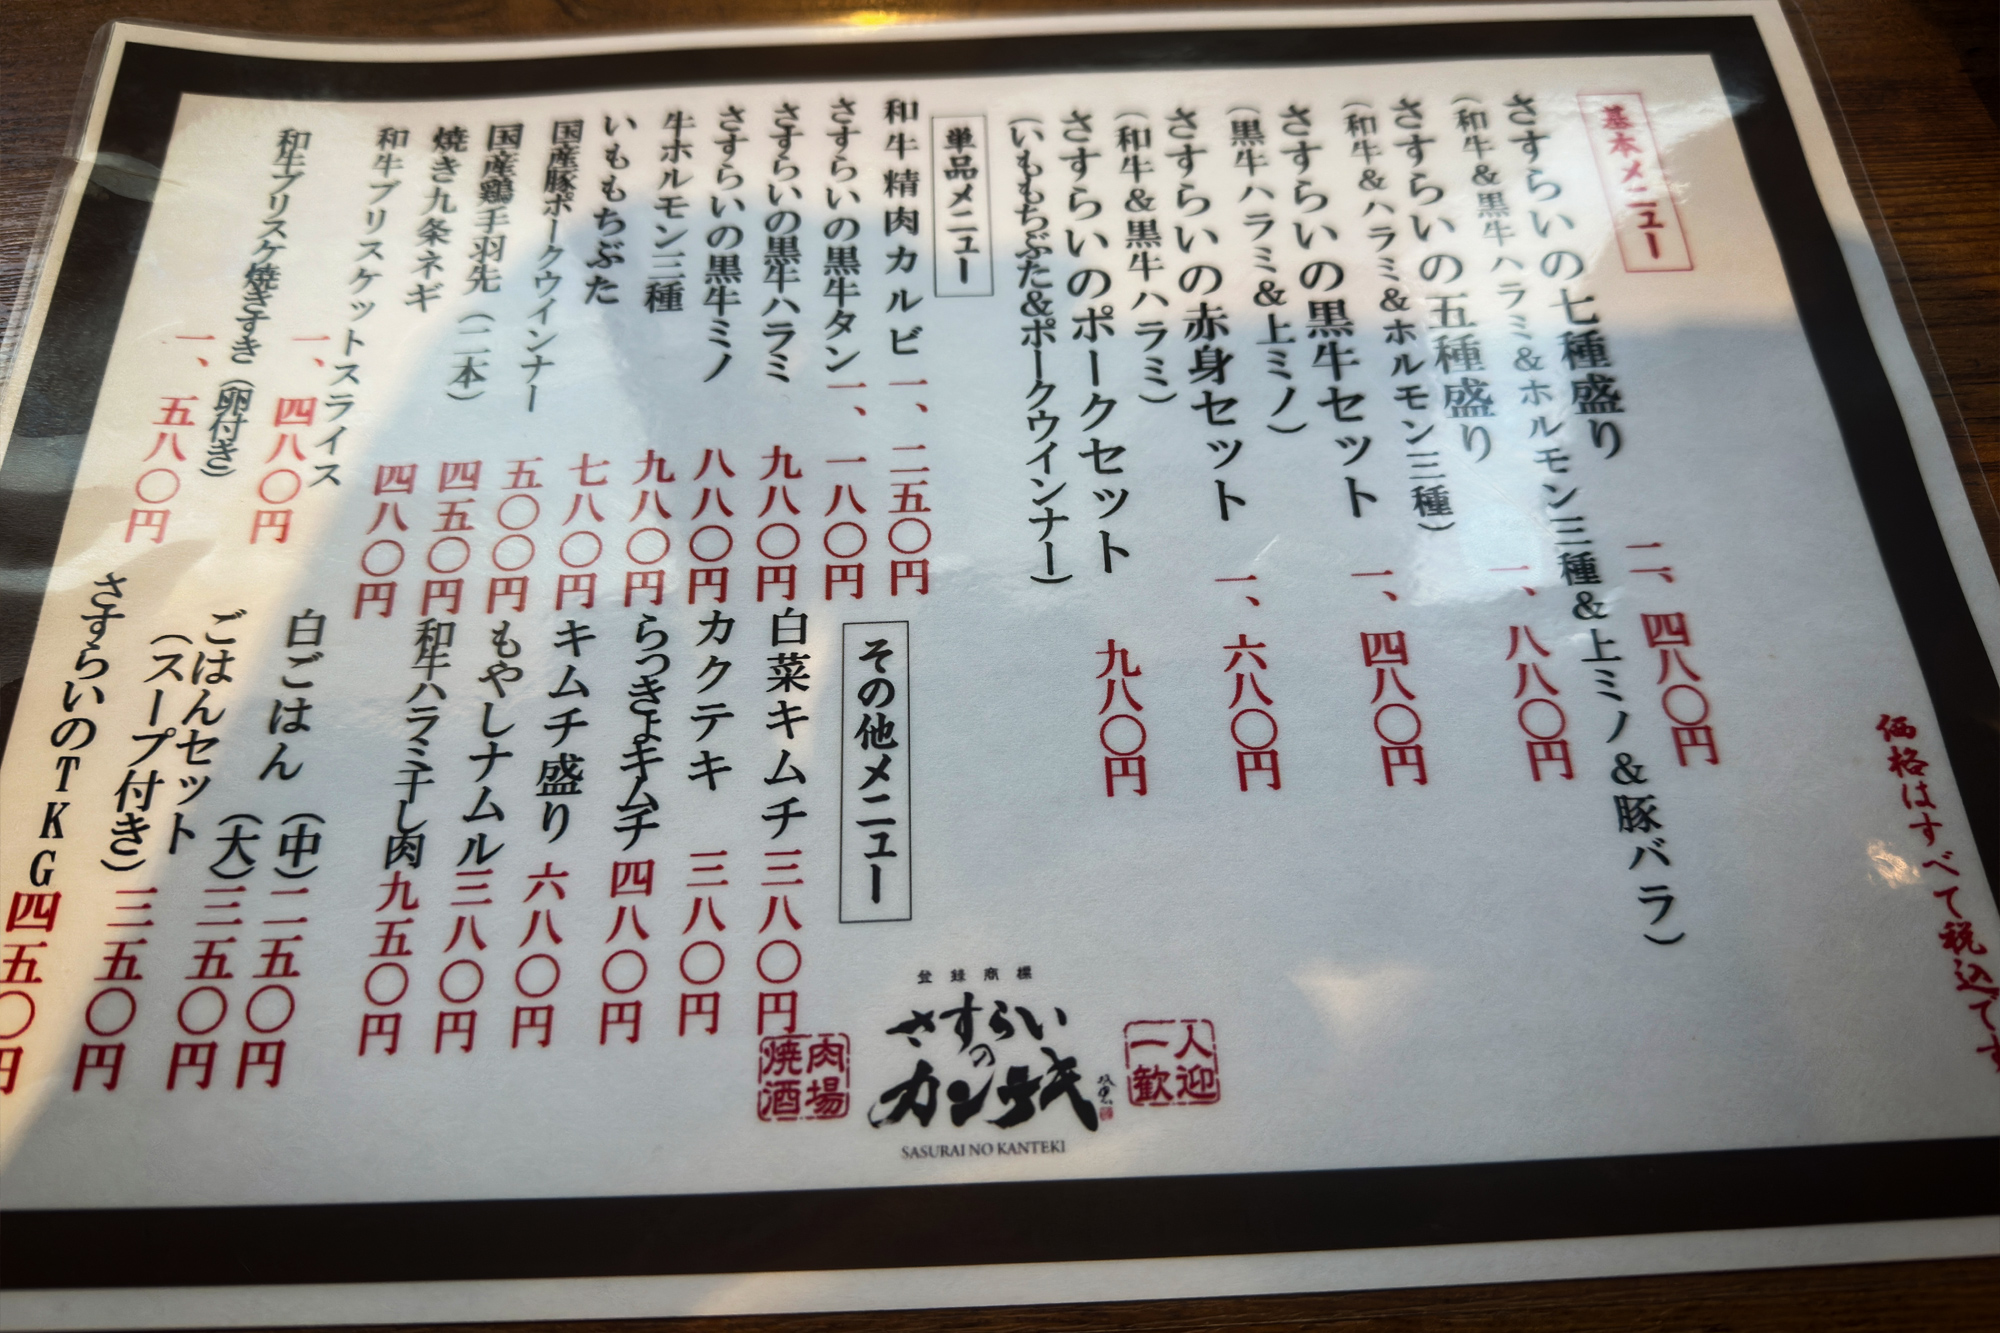 価格はすべて税込です
基本メニュー
さすらいの七種盛り 二、四八〇円
(和牛&黒牛ハラミ&ホルモン三種&上ミノ&豚バラ)
さすらいの五種盛り 一、八八〇円
(和牛&ハラミ&ホルモン三種)
さすらいの黒牛セット 一、四八〇円
(黒牛ハラミ&上ミノ)
さすらいの赤身セット 一、六八〇円
(和牛&黒牛ハラミ)
さすらいのポークセット 九八〇円
(いももちぶた&ポークウインナー)
単品メニュー
和牛精肉カルビ 一、二五〇円
さすらいの黒牛タン 一、一八〇円
さすらいの黒牛ハラミ 九八〇円
さすらいの黒牛ミノ 八八〇円
牛ホルモン三種 九八〇円
いももちぶた 七八〇円
国産豚ポークウインナー 五〇〇円
国産鶏手羽先(二本) 四五〇円
焼き九条ネギ 四八〇円
和牛ブリスケットスライス 一、四八〇円
和牛ブリスケ焼きすき(卵付き) 一、五八〇円
その他メニュー
白菜キムチ 三八〇円
カクテキ 三八〇円
らっきょキムチ 四八〇円
キムチ盛り 六八〇円
もやしナムル 三八〇円
和牛ハラミ干し肉 九五〇円
白ごはん (中) 二五〇円
(大) 三五〇円
ごはんセット
(スープ付き) 三五〇円
さすらいのTKG 四五〇円
登録商標
さすらいのカンテキ
SASURAI NO KANTEKI
一人歓迎
焼肉酒場